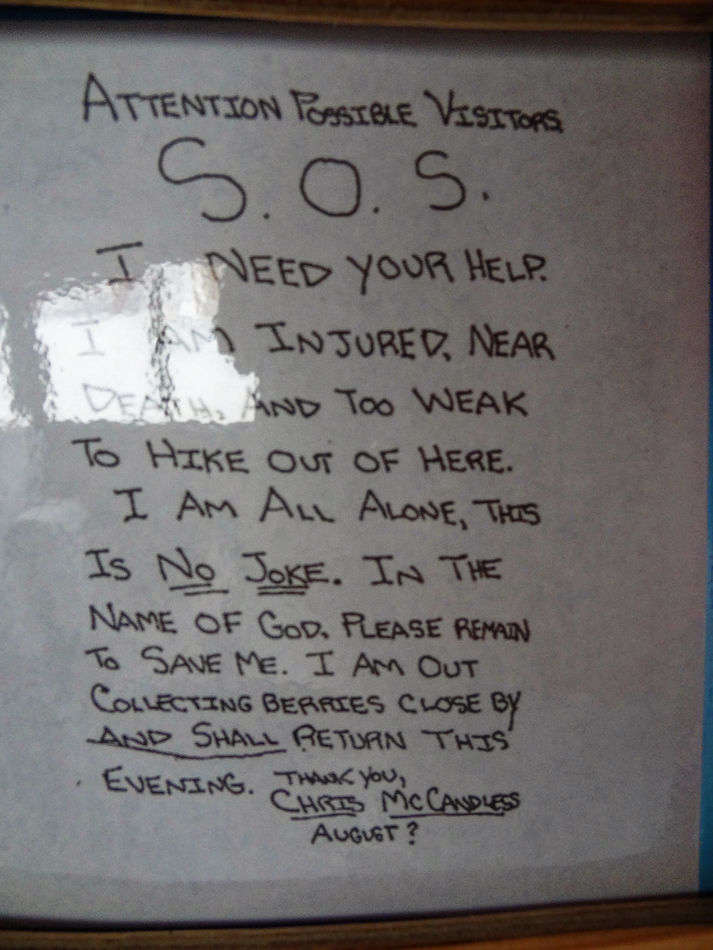 ATTENTION POSSIBLE VISITORS
S.O.S.
I NEED YOUR HELP.
I AM INJURED, NEAR
DEATH, AND TOO WEAK
TO HIKE OUT OF HERE.
I AM ALL ALONE, THIS
IS NO JOKE. IN THE
NAME OF GOD, PLEASE REMAIN
TO SAVE ME. I AM OUT
COLLECTING BERRIES CLOSE BY
AND SHALL RETURN THIS
EVENING. THANK YOU,
CHRIS MCCANDLESS
AUGUST?